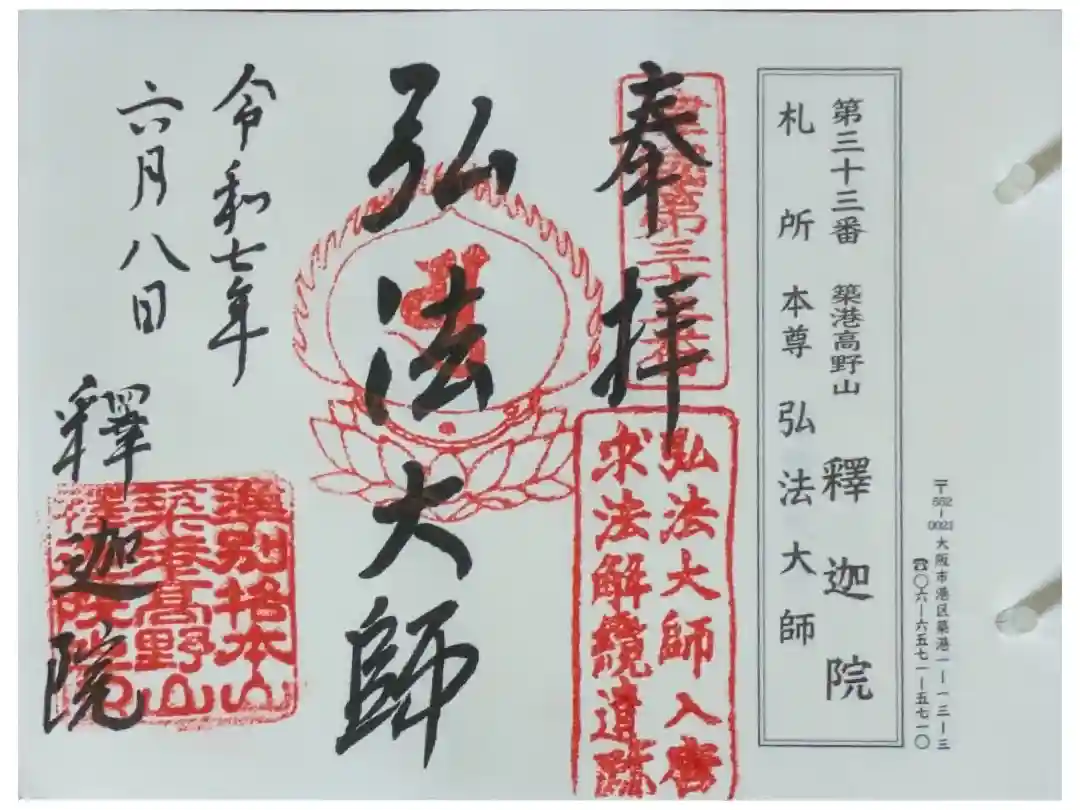 第三十三番 築港高野山 釋迦院
札所本尊 弘法大師
〒552-0021 大阪市港区築港一-一三-三
☎〇六-六五七一-五七一〇
奉拝
第三十三番
弘法大師入唐
求法解纜遺跡
弘法大師
令和七年
六月八日
釋迦院
準別格本山
築港高野山
釋迦院